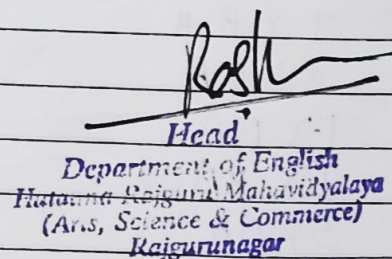 Head
Department of English
Hutatma Rajguru Mahavidyalaya
(Arts, Science & Commerce)
Rajgurunagar